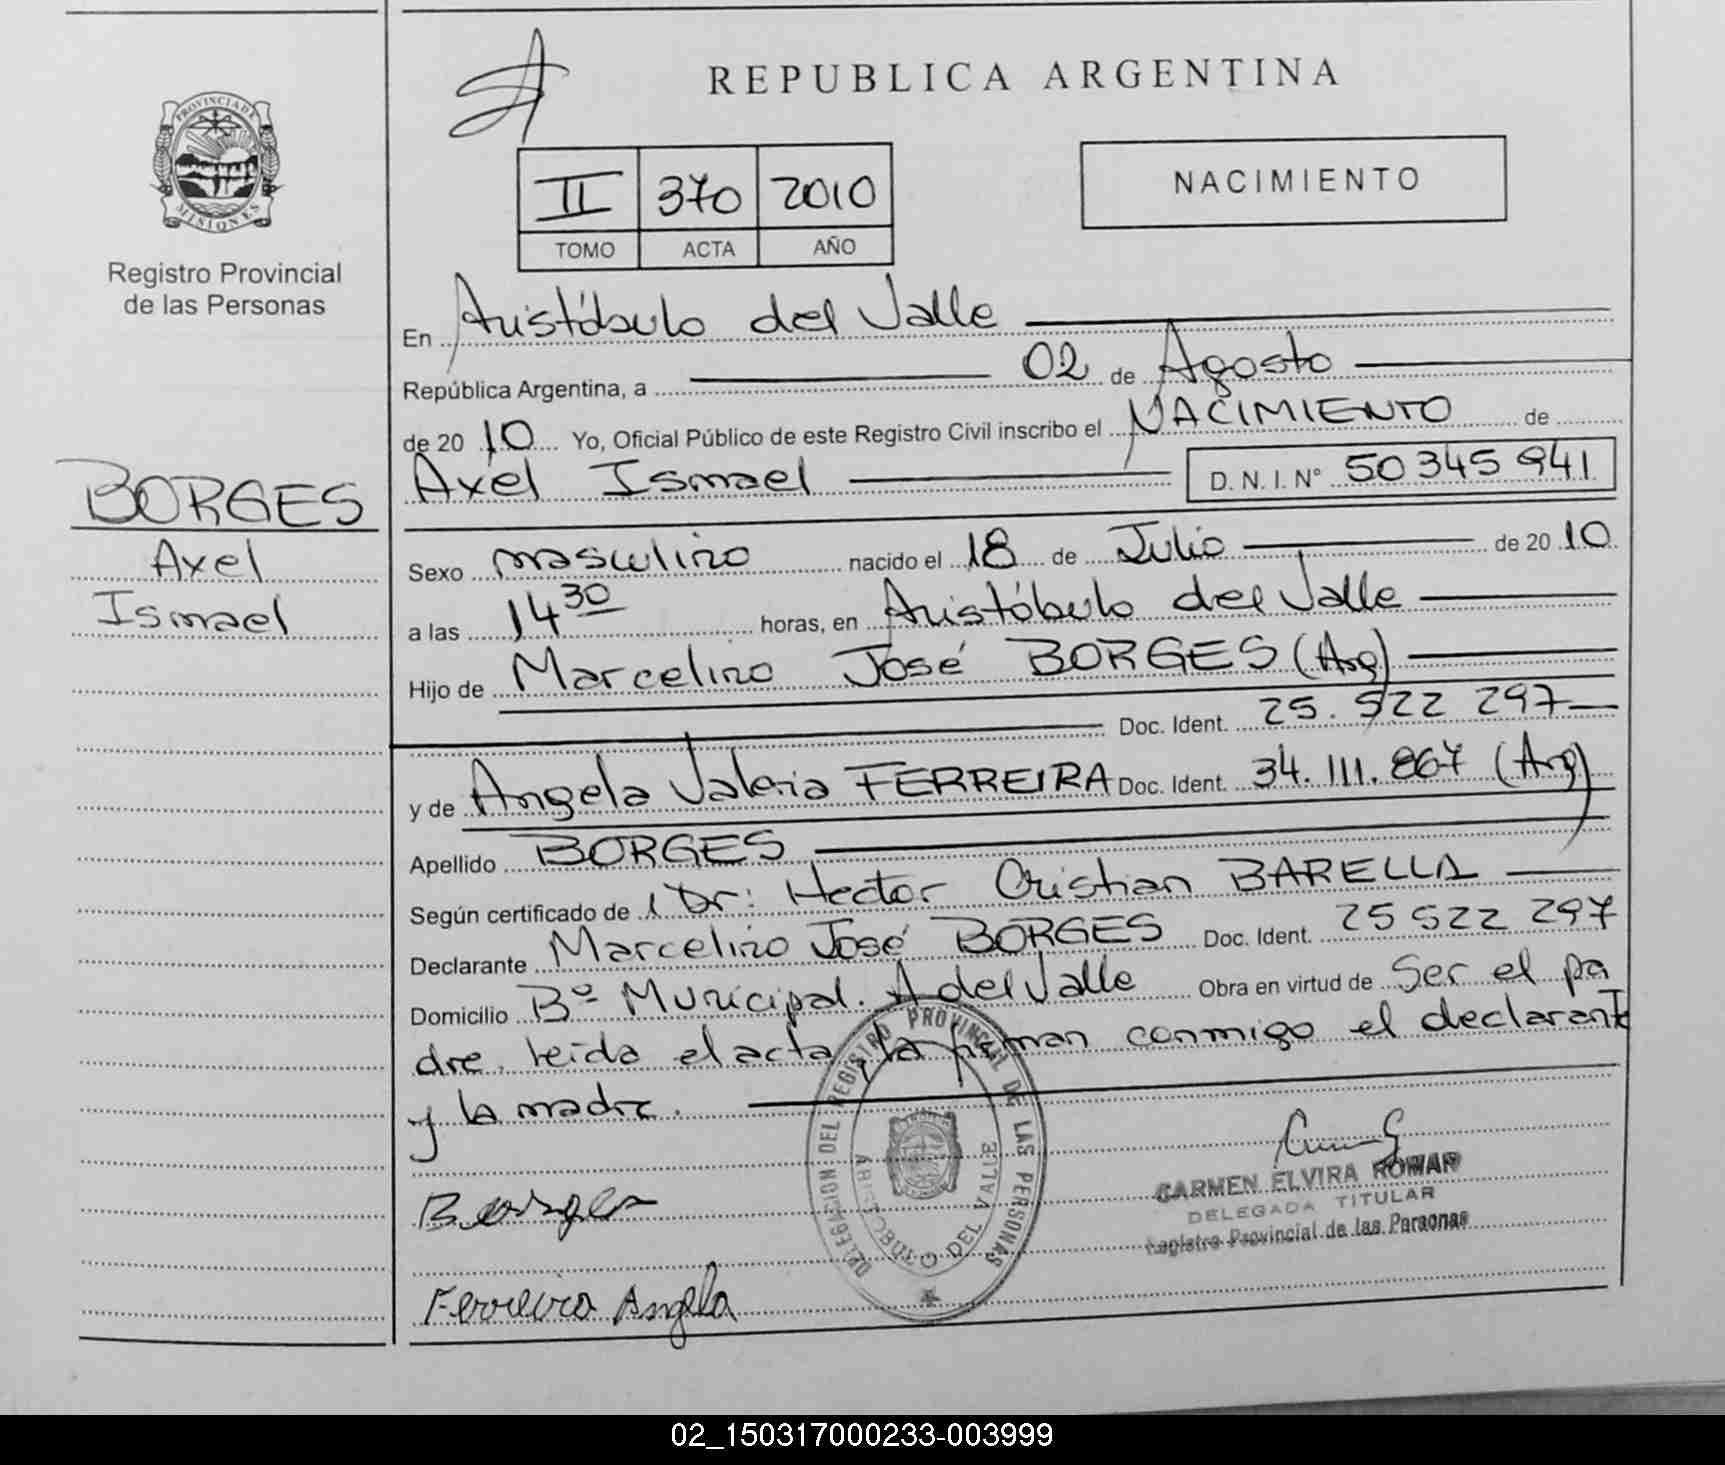 REPUBLICA ARGENTINA
PROVINCIA DE
MISIONES
Registro Provincial
de las Personas
II 370 2010
TOMO ACTA AÑO
NACIMIENTO
En Aristóbulo del Valle
República Argentina, a 02 de Agosto
de 20 10 Yo, Oficial Público de este Registro Civil inscribo el NACIMIENTO de
Axel Ismael D. N. I. N° 50 345 941
BORGES
Axel
Ismael
Sexo masculino nacido el 18 de Julio de 20 10
a las 14 30 horas, en Aristóbulo del Valle
Hijo de Marcelino José BORGES (Arg)
Doc. Ident. 25. 522 297
y de Angela Valeria FERREIRA Doc. Ident. 34. 111. 867 (Arg)
Apellido BORGES
Según certificado de Dr: Hector Cristian BARELLA
Declarante Marcelino José BORGES Doc. Ident. 25 522 297
Domicilio Bº Municipal. A del Valle Obra en virtud de Ser el pa
dre. leida el acta, la firman conmigo el declarante
y la madre.
DELEGACION DEL REGISTRO PROVINCIAL DE LAS PERSONAS
ARISTOBULO DEL VALLE
CARMEN ELVIRA ROMAN
DELEGADA TITULAR
Registro Provincial de las Personas
Borges
Ferreira Angela
02_150317000233-003999